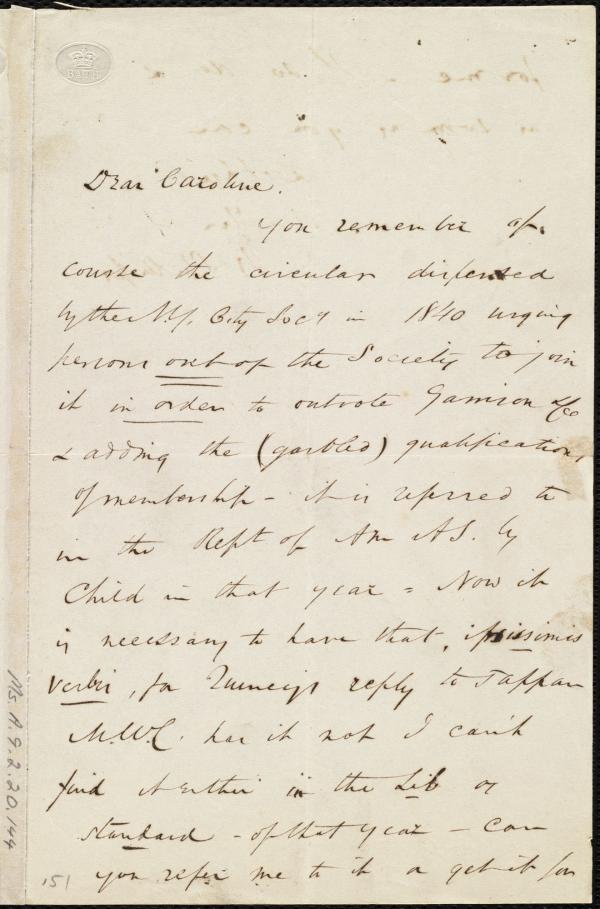 BATH
Dear Caroline.
You remember of
course the circular dispensed
by the N.Y. City Socy in 1840 urging
persons out of the Society to join
it in order to outvote Garrison &co
& adding the (garbled) qualifications
of membership - it is referred to
in the Rept of Am A S. by
Child in that year = Now it
is necessary to have that, ipsissimis
verbis, for Quincy's reply to Tappan
M.W.C. has it not I can't
find it either in the Lib or
Standard - of that year - can
you refer me to it or get it for
151
Ms. A.9.2.20.144